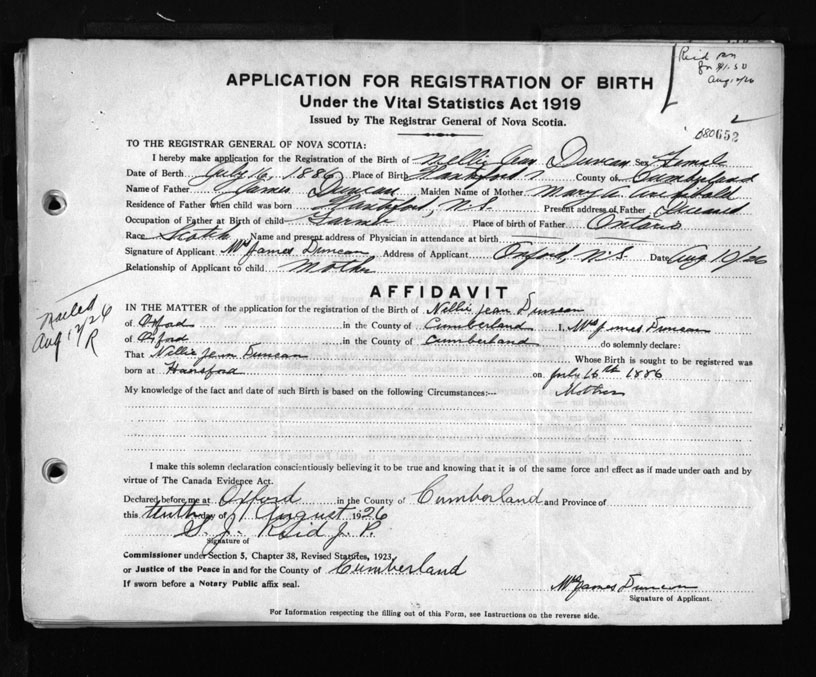 Reid
for $1.50
Aug 12/26
080652
APPLICATION FOR REGISTRATION OF BIRTH
Under the Vital Statistics Act 1919
Issued by The Registrar General of Nova Scotia.
TO THE REGISTRAR GENERAL OF NOVA SCOTIA:
I hereby make application for the Registration of the Birth of Nellie Jean Duncan Sex Female
Date of Birth July 16, 1886 Place of Birth Hansford County of Cumberland
Name of Father James Duncan Maiden Name of Mother Mary A. Archibald
Residence of Father when child was born Hansford, N.S. Present address of Father Deceased
Occupation of Father at Birth of child Farmer Place of birth of Father Ontario
Race Scotch Name and present address of Physician in attendance at birth
Signature of Applicant Mrs James Duncan Address of Applicant Oxford, N.S. Date Aug 10/26
Relationship of Applicant to child Mother
Mailed
Aug 12/26
R
AFFIDAVIT
IN THE MATTER of the application for the registration of the Birth of Nellie Jean Duncan
of Oxford in the County of Cumberland I, Mrs James Duncan
of Oxford in the County of Cumberland do solemnly declare:
That Nellie Jean Duncan Whose Birth is sought to be registered was
born at Hansford on July 16th 1886
My knowledge of the fact and date of such Birth is based on the following Circumstances:--- Mother
I make this solemn declaration conscientiously believing it to be true and knowing that it is of the same force and effect as if made under oath and by
virtue of The Canada Evidence Act.
Declared before me at Oxford in the County of Cumberland and Province of
this tenth day of August 1926
S. J. Reid J. P.
Signature of
Commissioner under Section 5, Chapter 38, Revised Statutes, 1923,
or Justice of the Peace in and for the County of Cumberland
If sworn before a Notary Public affix seal.
Mrs James Duncan
Signature of Applicant.
For Information respecting the filling out of this Form, see Instructions on the reverse side.